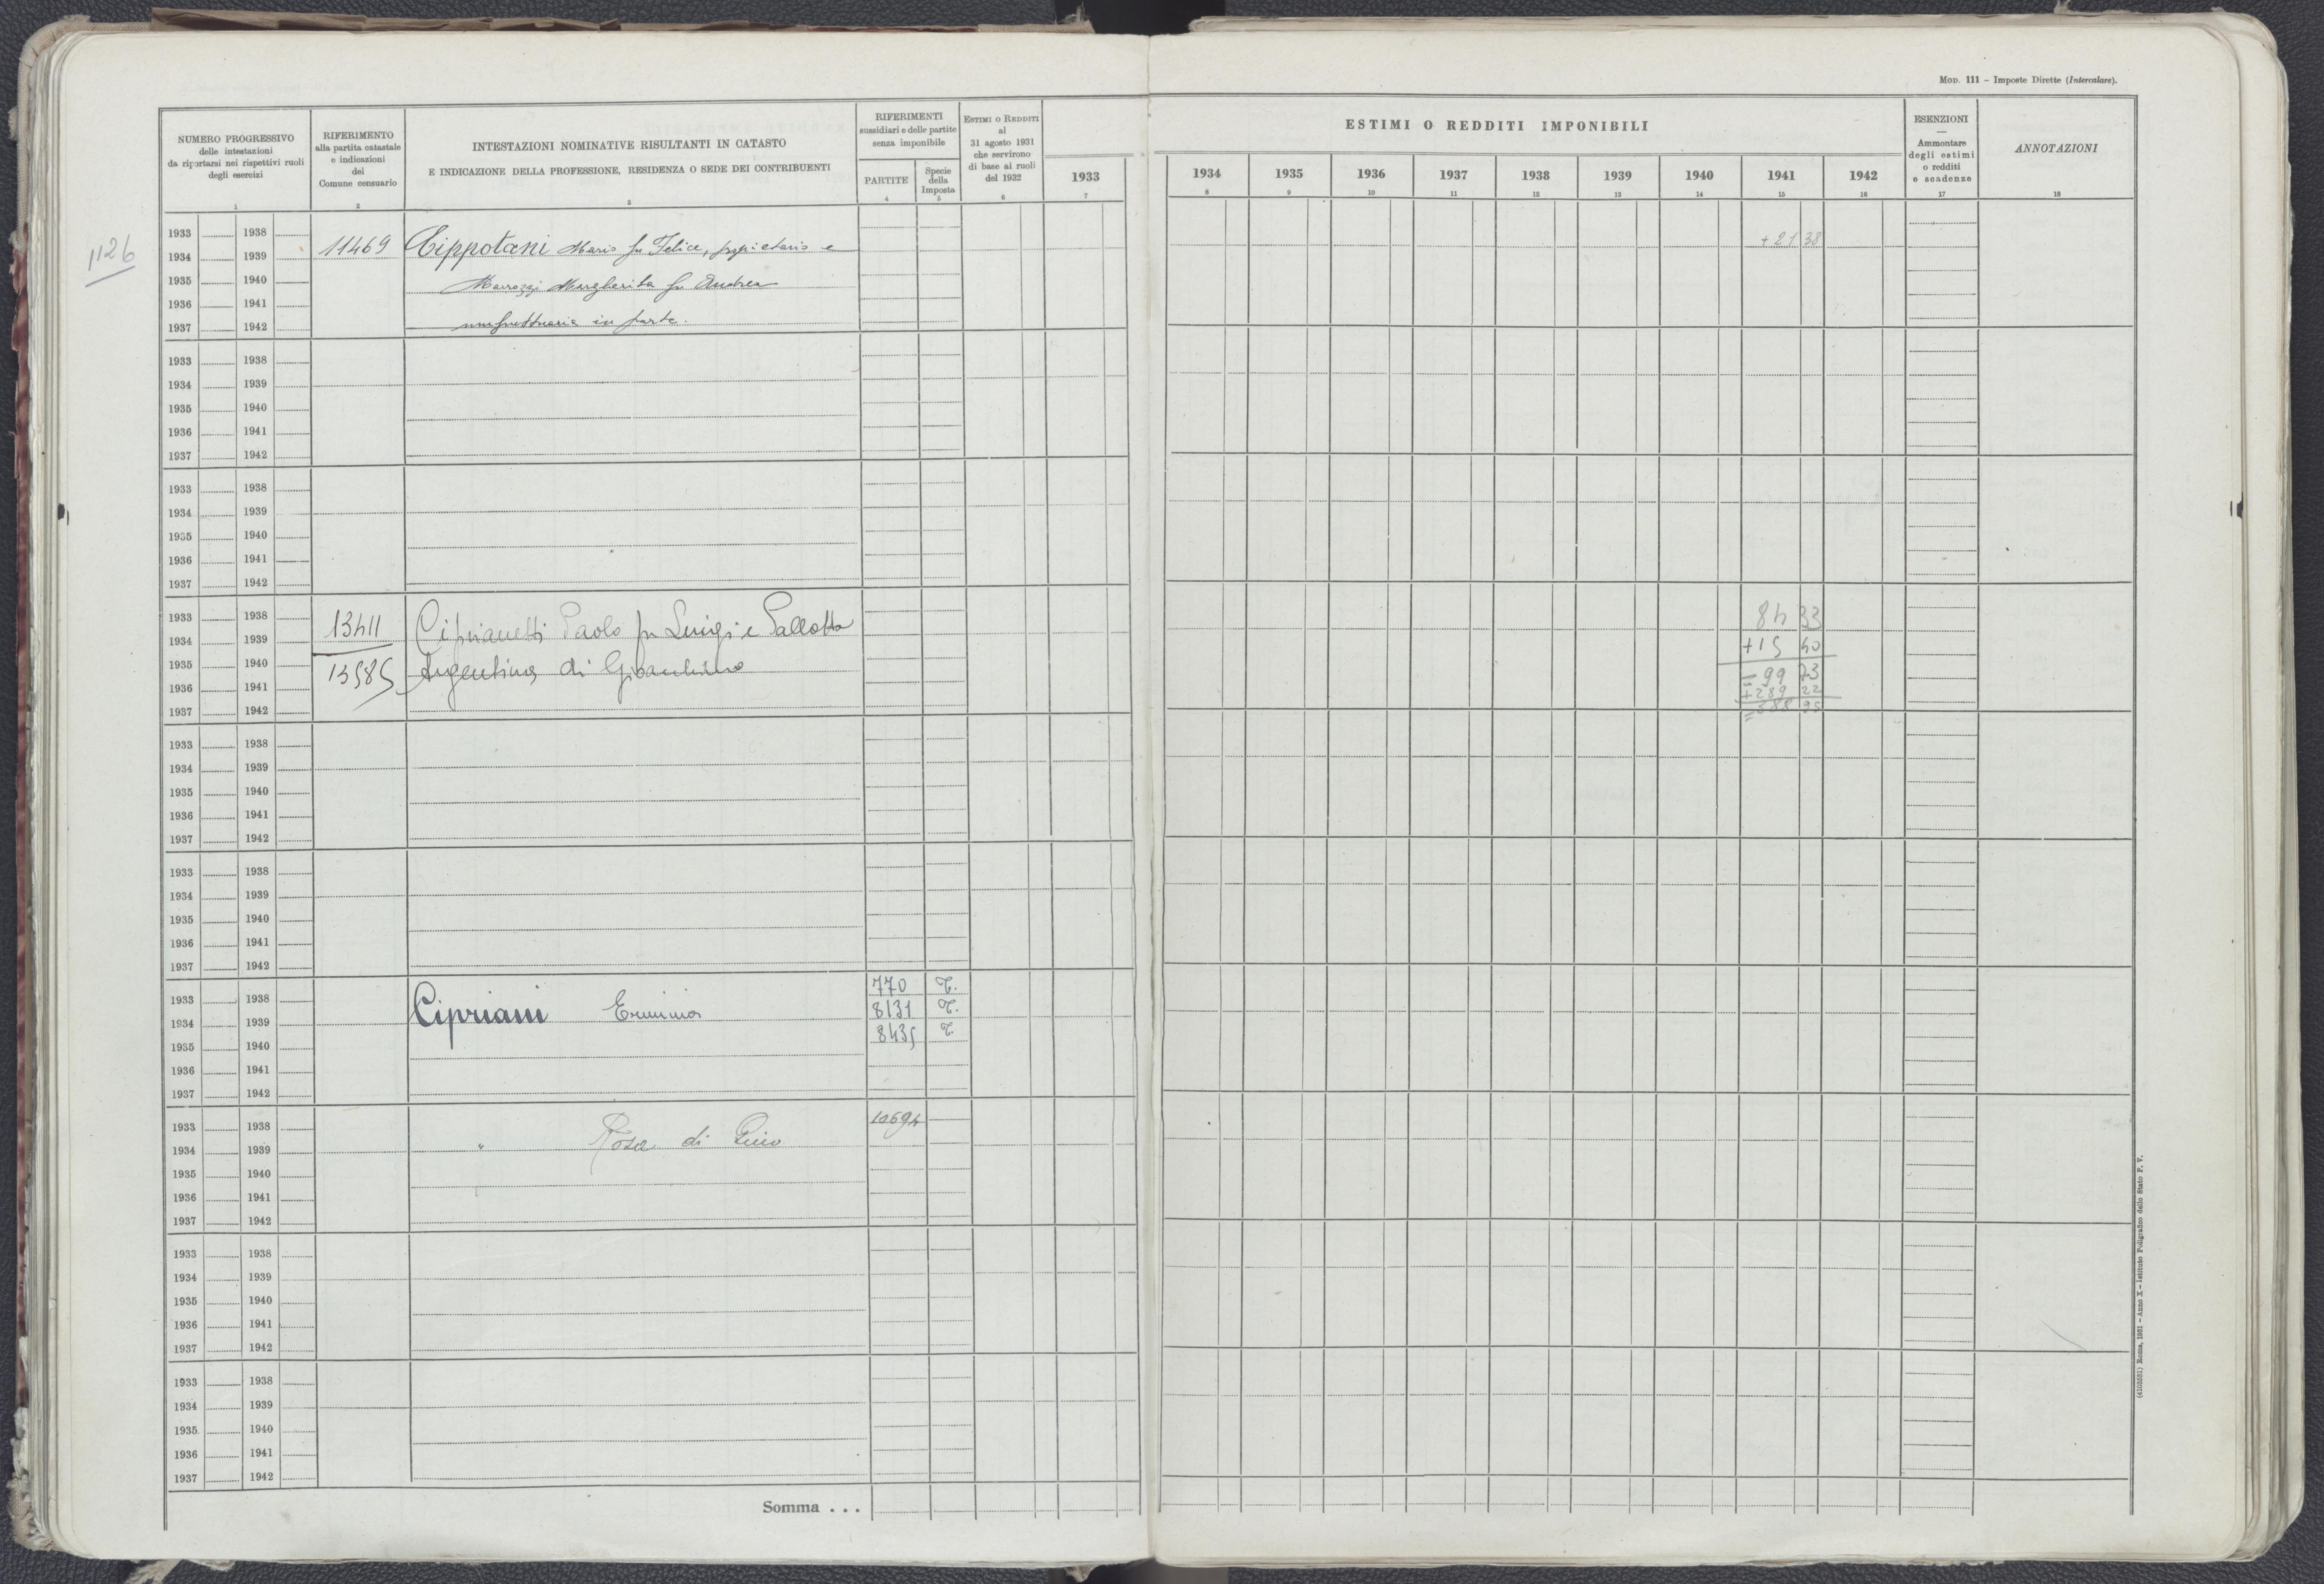 Mod. 111 – Imposte Dirette (Intercalare).
NUMERO PROGRESSIVO
delle intestazioni
da riportarsi nei rispettivi ruoli
degli esercizi
1
RIFERIMENTO
alla partita catastale
e indicazioni
del
Comune censuario
2
INTESTAZIONI NOMINATIVE RISULTANTI IN CATASTO
E INDICAZIONE DELLA PROFESSIONE, RESIDENZA O SEDE DEI CONTRIBUENTI
3
RIFERIMENTI
sussidiari e delle partite
senza imponibile
PARTITE
4
Specie
della
Imposta
5
Estimi o Redditi
al
31 agosto 1931
che servirono
di base ai ruoli
del 1932
6
1933
7
ESTIMI O REDDITI IMPONIBILI
1934 1935 1936 1937 1938 1939 1940 1941 1942
8 9 10 11 12 13 14 15 16
ESENZIONI
—
Ammontare
degli estimi
o redditi
e scadenze
17
ANNOTAZIONI
18
1126
1933 1938
1934 1939 11469 Cippotani Mario fu Felice, proprietario e + 21 38
1935 1940 Marrozzi Margherita fu Andrea
1936 1941
1937 1942 usufruttuaria in parte.
1933 1938
1934 1939
1935 1940
1936 1941
1937 1942
1933 1938
1934 1939
1935 1940
1936 1941
1937 1942
1933 1938 13411 Ciprianetti Paolo fu Luigi e Pallotta 84 33
1934 1939 +15 40
1935 1940 13585 Argentina di Gioacchino = 99 73
1936 1941 +289 22
1937 1942 = 388 95
1933 1938
1934 1939
1935 1940
1936 1941
1937 1942
1933 1938
1934 1939
1935 1940
1936 1941
1937 1942
770 T.
1933 1938 Cipriani Erminia 8131 T.
1934 1939 8435 T.
1935 1940
1936 1941
1937 1942
1933 1938 10694
1934 1939 " Rosa di Gino
1935 1940
1936 1941
1937 1942
1933 1938
1934 1939
1935 1940
1936 1941
1937 1942
1933 1938
1934 1939
1935 1940
1936 1941
1937 1942
Somma . . .
(4103581) Roma, 1931 – Anno X – Istituto Poligrafico dello Stato P. V.